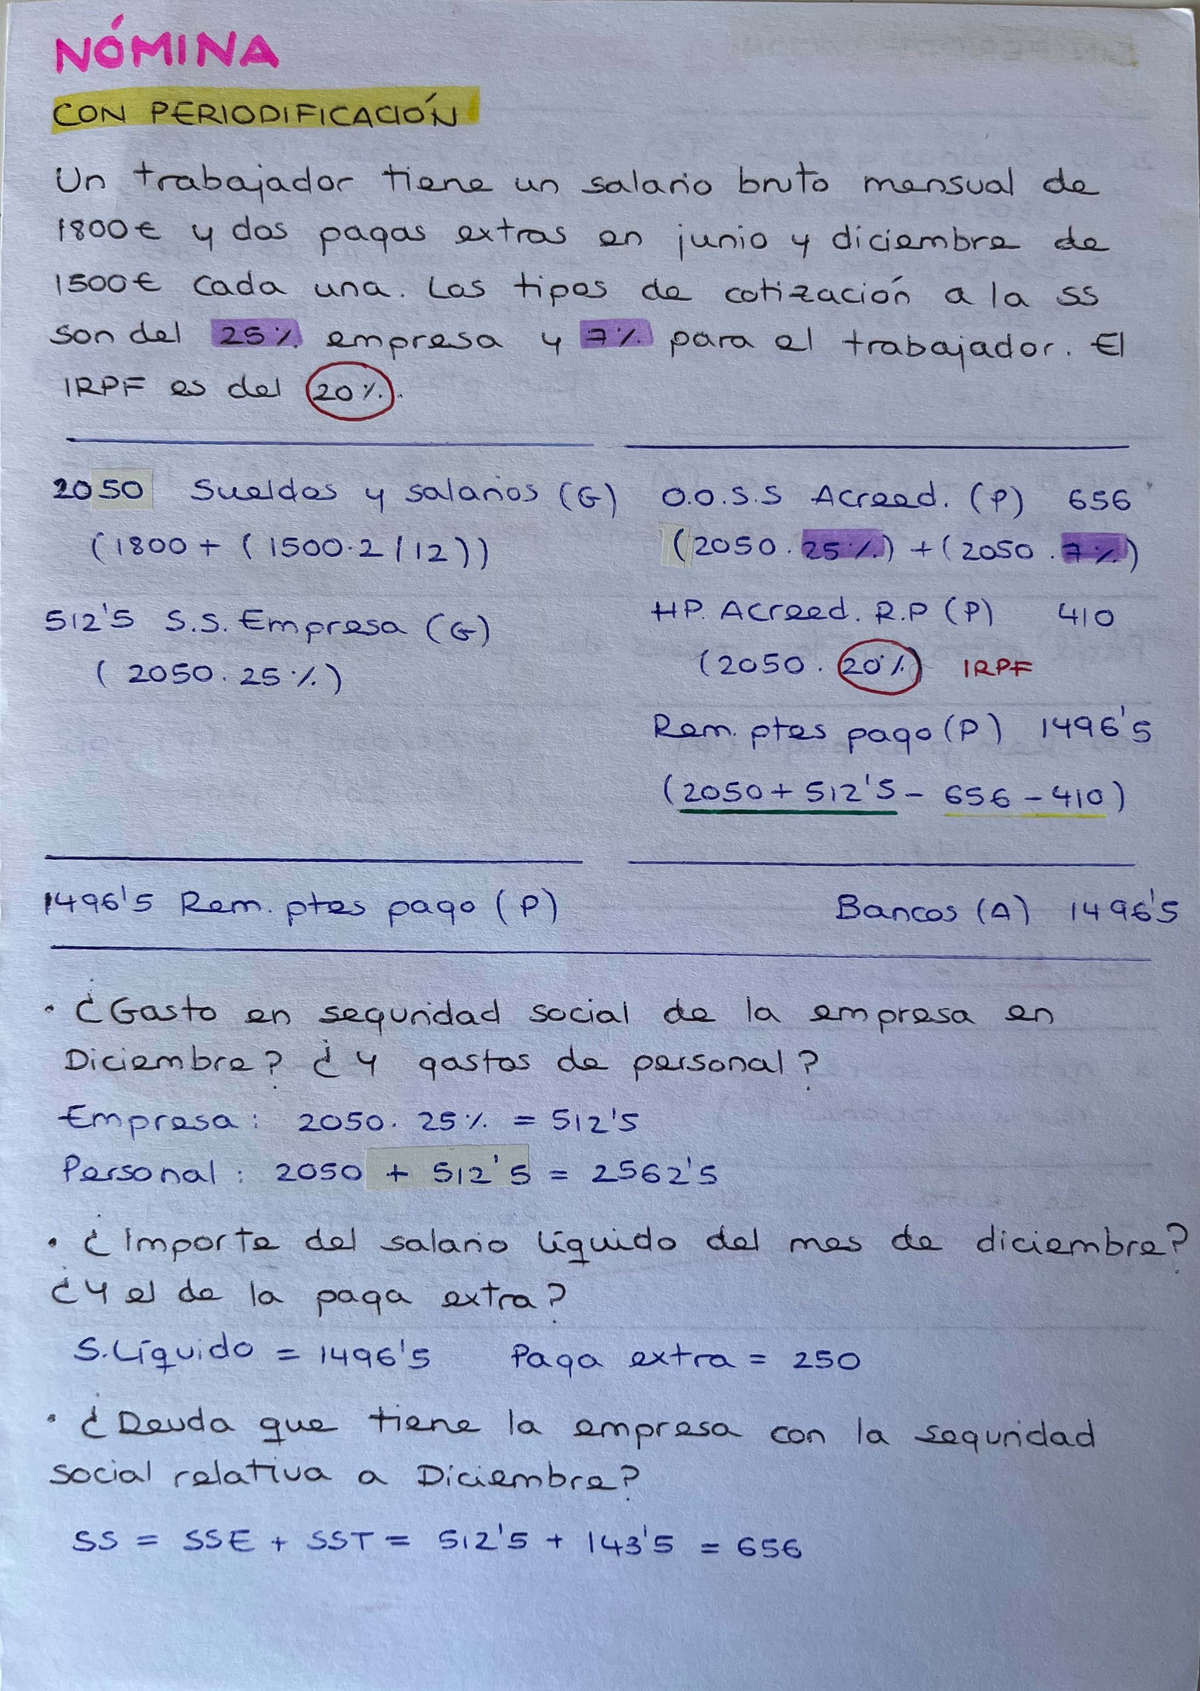 NÓMINA
CON PERIODIFICACIÓN
Un trabajador tiene un salario bruto mensual de
1800€ y dos pagas extras en junio y diciembre de
1500€ cada una. Los tipos de cotización a la SS
son del 25%. empresa y 7%. para el trabajador. El
IRPF es del 20%.
2050 Sueldos y salarios (G) O.O.S.S Acreed. (P) 656
(1800 + (1500·2/12)) (2050 · 25%) + (2050 · 7%)
512'5 S.S. Empresa (G) HP. Acreed. R.P (P) 410
(2050 · 25%) (2050 · 20%) IRPF
Rem. ptes pago (P) 1496'5
(2050 + 512'5 - 656 - 410)
1496'5 Rem. ptes pago (P) Bancos (A) 1496'5
· ¿Gasto en seguridad social de la empresa en
Diciembre? ¿Y gastos de personal?
Empresa: 2050 · 25% = 512'5
Personal: 2050 + 512'5 = 2562'5
· ¿Importe del salario líquido del mes de diciembre?
¿Y el de la paga extra?
S. Líquido = 1496'5 Paga extra = 250
· ¿Deuda que tiene la empresa con la seguridad
social relativa a Diciembre?
SS = SSE + SST = 512'5 + 143'5 = 656